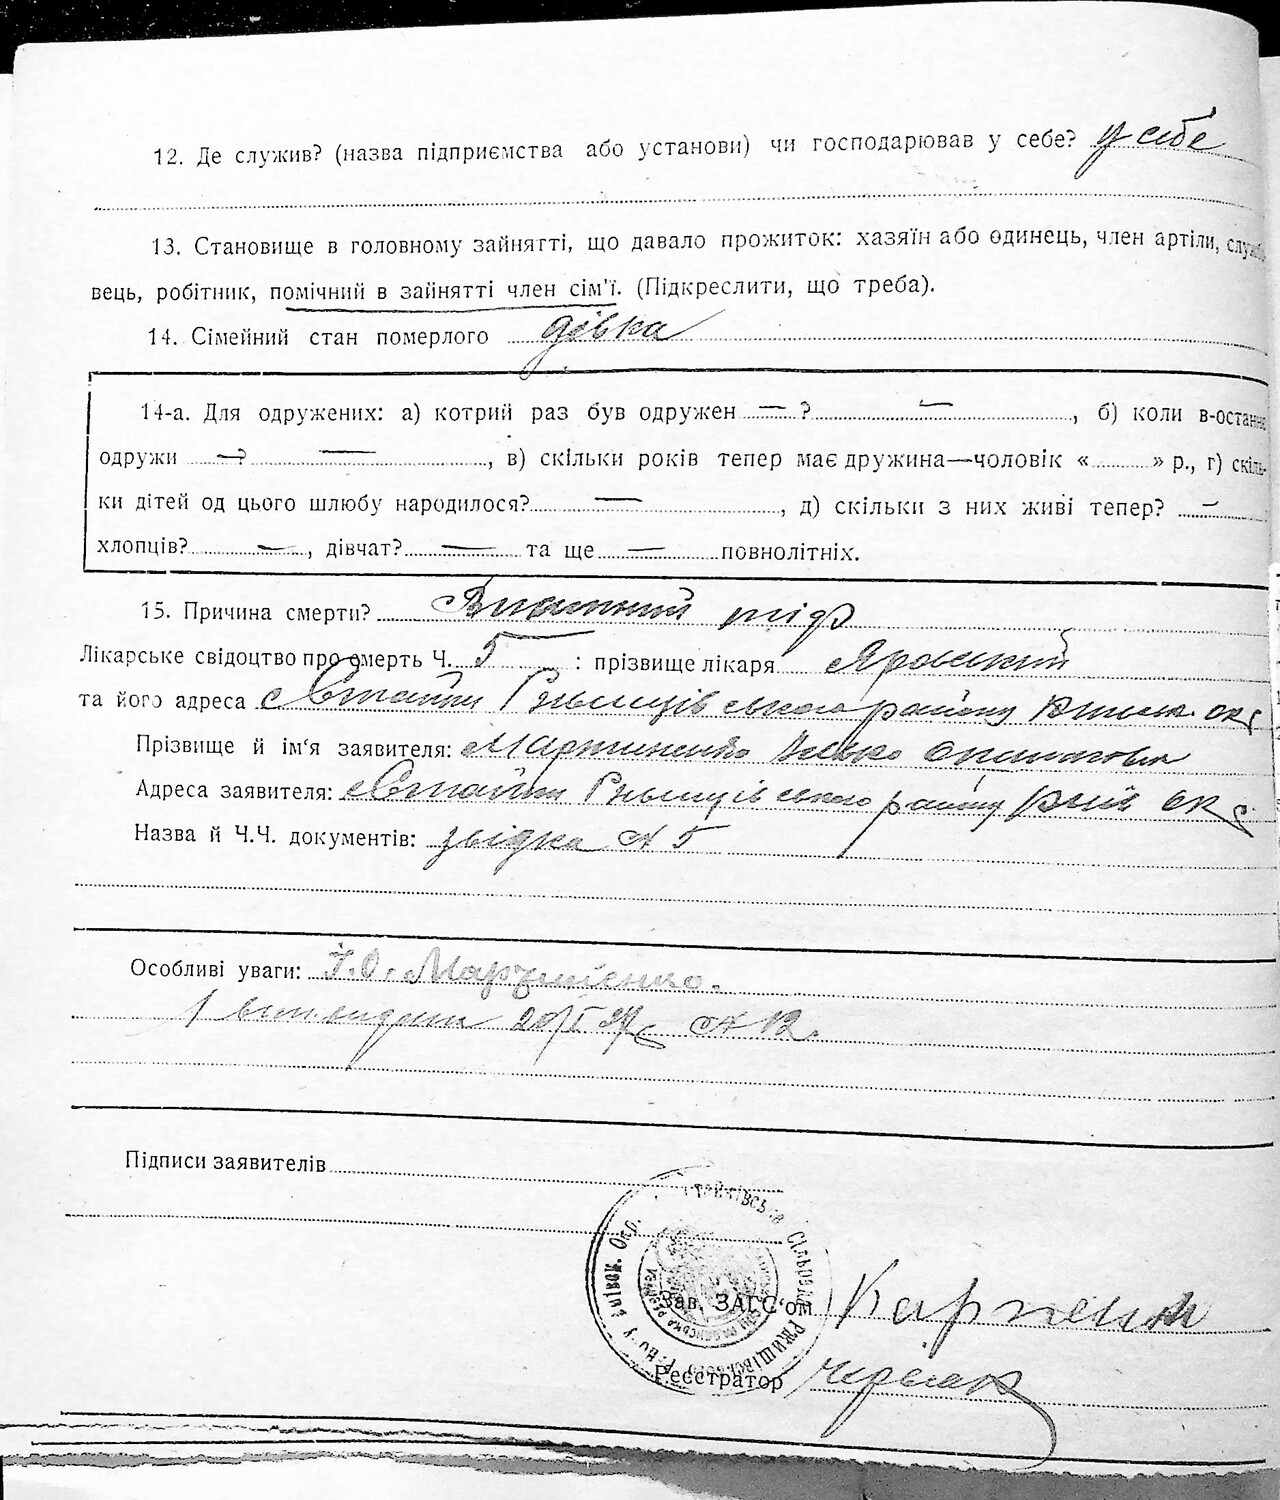 12. Де служив? (назва підприємства або установи) чи господарював у себе? у себе
13. Становище в головному зайнятті, що давало прожиток: хазяїн або одинець, член артіли, служ
вець, робітник, помічний в зайнятті член сім'ї. (Підкреслити, що треба).
14. Сімейний стан померлого дівка
14-а. Для одружених: а) котрий раз був одружен — ? —, б) коли в-останнє
одружи —? —, в) скільки років тепер має дружина—чоловік « » р., г) скіль-
ки дітей од цього шлюбу народилося? —, д) скільки з них живі тепер? —
хлопців? —, дівчат? — та ще — повнолітніх.
15. Причина смерти? тіф
Лікарське свідоцтво про смерть Ч. 5 : прізвище лікаря Яровський
та його адреса с Стайки Ржищівського району окр
Прізвище й ім'я заявителя: Мартиненко
Адреса заявителя: с Стайки Ржищівського району Київ окр
Назва й Ч.Ч. документів: звідка № 5
Особливі уваги: І. О. Мартиненко.
1 20/І № 12.
Підписи заявителів
Стайківська Сільрада Ржищівського Р-ну Київск. Окр.
Зав. ЗАГС'ом Карпенко
Реєстратор